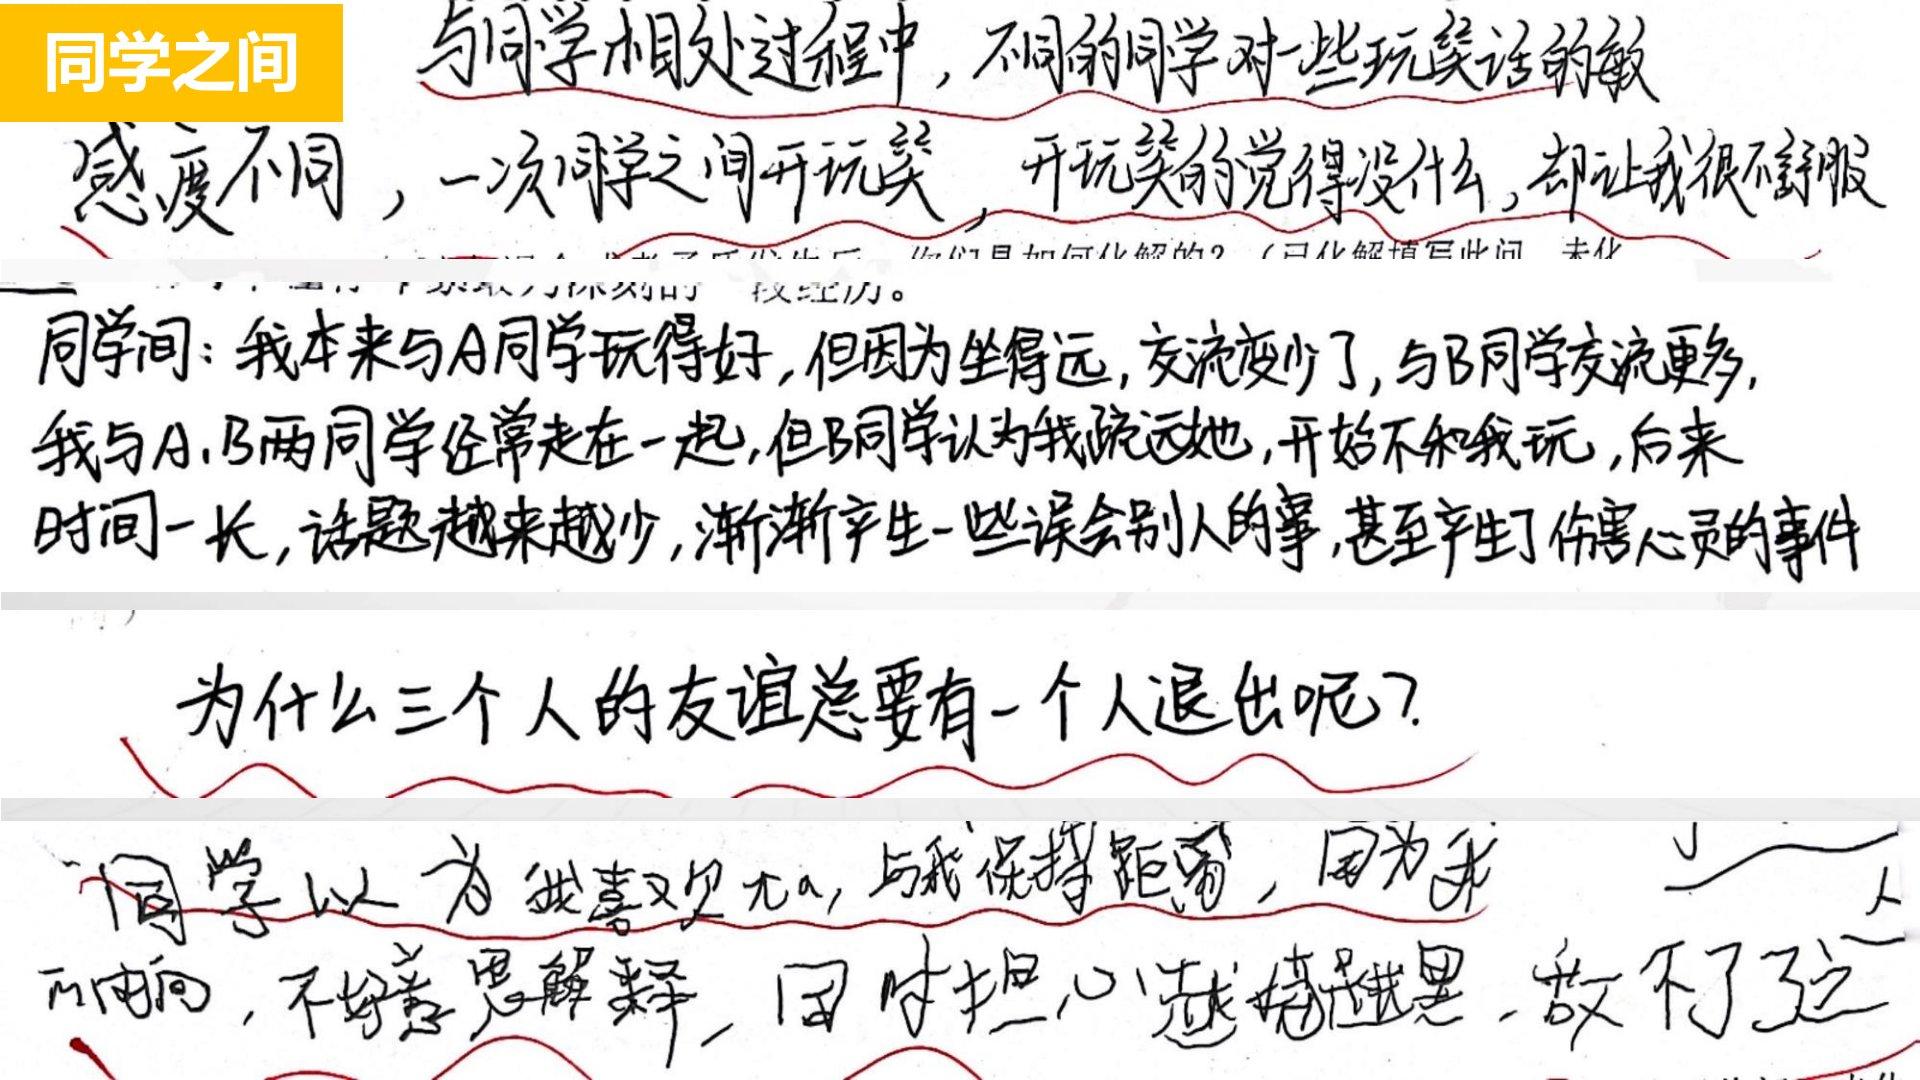 同学之间
与同学相处过程中，不同的同学对一些玩笑话的敏
感度不同，一次同学之间开玩笑，开玩笑的觉得没什么，却让我很不舒服
你们是如何化解的？（已化解填写此问，未化
深刻的一段经历。
同学间：我本来与A同学玩得好，但因为坐得远，交流变少了，与B同学交流更多，
我与A、B两同学经常走在一起，但B同学认为我疏远她，开始不和我玩，后来
时间一长，话题越来越少，渐渐产生一些误会别人的事，甚至产生了伤害心灵的事件
为什么三个人的友谊总要有一个人退出呢？
同学以为我喜欢ta，与我保持距离，因为我
内向，不好意思解释，同时担心越描越黑，